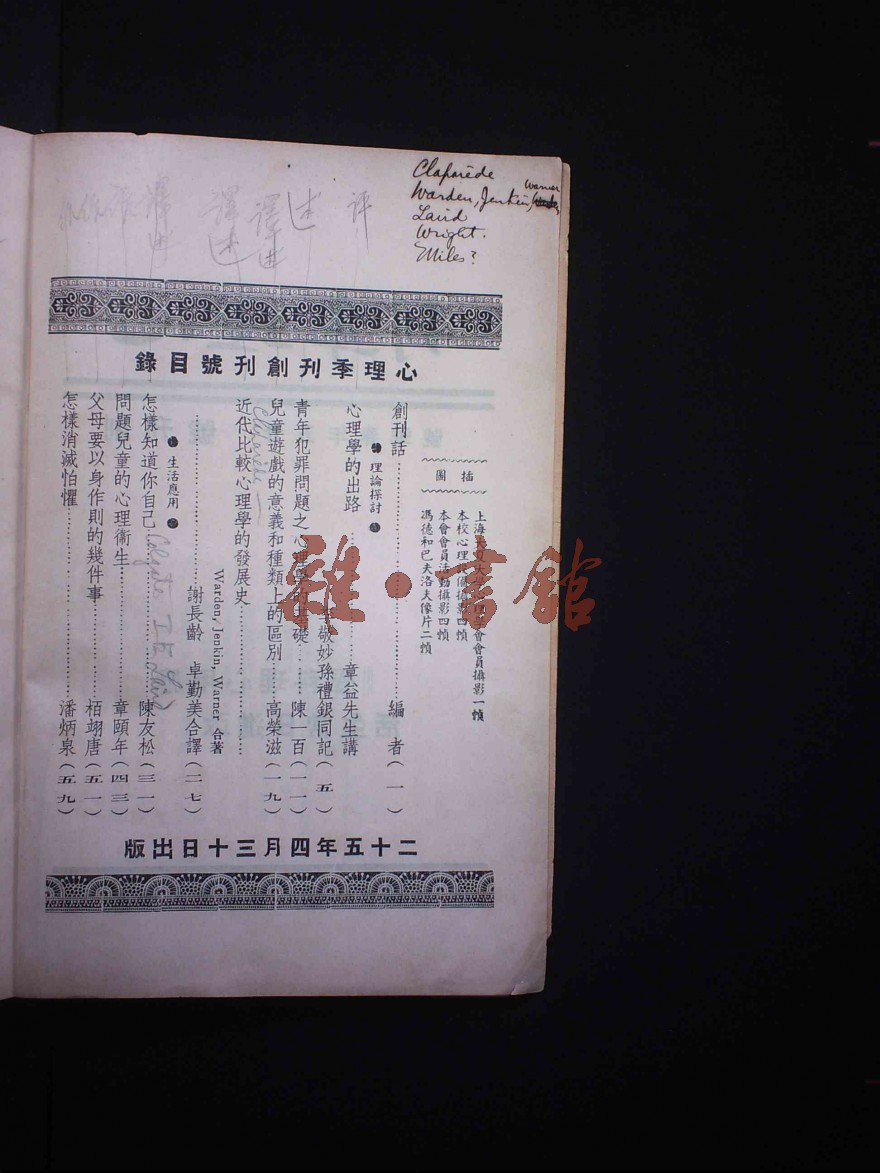 Claparède
Warden, Jenkin, Warner
Laird
Wright.
Miles?
評
述
譯述
譯述
心理季刊創刊號目錄
插圖
上海
會會員攝影一幀
本校心理
攝影四幀
本會會員活動攝影四幀
馮德和巴夫洛夫像片二幀
創刊話……編者(一)
理論探討
心理學的出路……章益先生講
李敬妙孫禮銀同記(五)
青年犯罪問題之心理學的基礎……陳一百(一一)
兒童遊戲的意義和種類上的區別……高榮滋(一九)
Claparède
近代比較心理學的發展史……
Warden, Jenkin, Warner 合著
……謝長齡 卓勤美合譯(二七)
生活應用
怎樣知道你自己……陳友松(三一)
Colgate
問題兒童的心理衞生……章頤年(四三)
父母要以身作則的幾件事……柏翊唐(五一)
怎樣消滅怕懼……潘炳泉(五九)
二十五年四月三十日出版
雜·書館